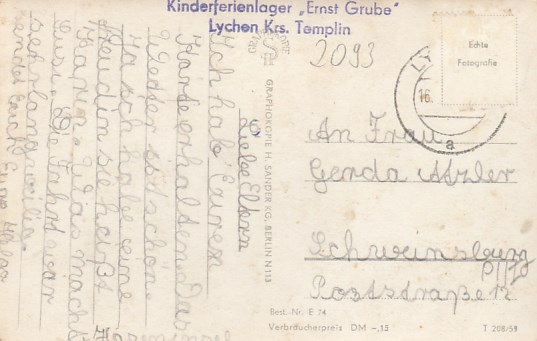 Kinderferienlager „Ernst Grube“
Lychen Krs. Templin
2093
Echte
Fotografie
16.
a
GRAPHOKOPIE H. SANDER KG, BERLIN N 113
Liebe Eltern
Ich hab Euren
Karte erhalten. Das
Wetter ist schön
Ja ich habe eine
Freudin sie heißt
Karin. Was macht
Susi. Die Fahrt war
sehr langweilig.
An Frau
Gerda Atzler
Schweinsburg
Poststraße 12
Best.-Nr. E 74
Verbraucherpreis DM -,15
T 208/59